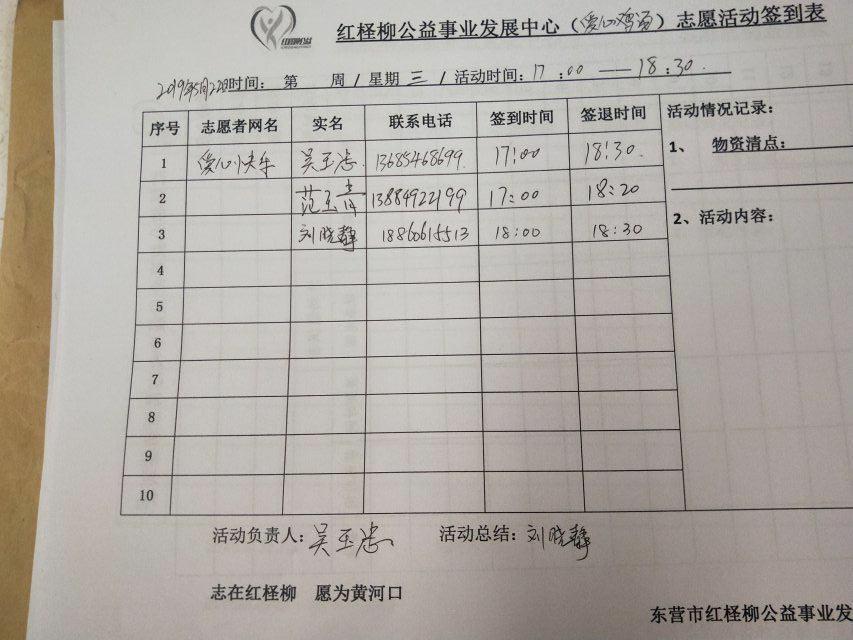 红柽柳公益事业发展中心（爱心鸡汤）志愿活动签到表
2019年5月22日时间： 第 周 / 星期 三 / 活动时间：17:00 — 18:30.
序号 志愿者网名 实名 联系电话 签到时间 签退时间 活动情况记录：
1 爱心快车 吴玉忠 13685468699. 17:00 18:30. 1、 物资清点：
2 范玉青 13884922199 17:00 18:20
3 刘晓静 18860615513 18:00 18:30 2、活动内容：
4
5
6
7
8
9
10
活动负责人：吴玉忠 活动总结：刘晓静
志在红柽柳 愿为黄河口
东营市红柽柳公益事业发